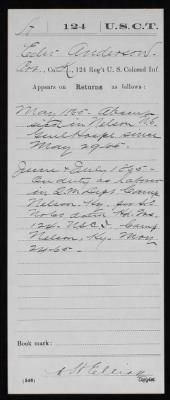 A | 124 | U.S.C.T.
Edw Anderson
Co. K, 124 Reg't U. S. Colored Inf.
Appears on Returns as follows:
May 1865. Absent
sick in Nelson
Genl Hospl since
May 29 65.
June & July, 1865-
On duty as laborer
in Q.M. Dept Camp
Nelson, Ky. per S.O.
No 62 dated Hd. Qrs.
124. USCI Camp
Nelson, Ky. May
24 65.
Book mark:
(546)
Copyist.